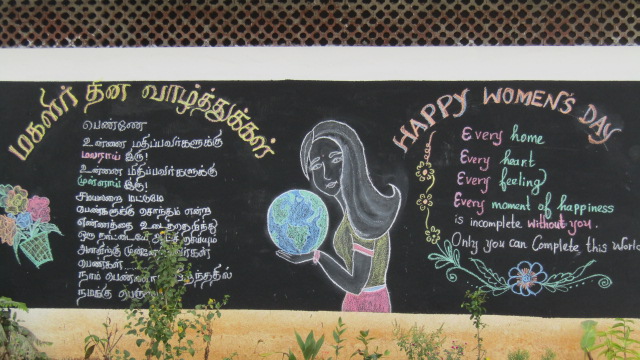 மகளிர் தின வாழ்த்துக்கள்
பெண்ணே
உன்னை மதிப்பவர்களுக்கு
மலராய் இரு!
உன்னை மிதிப்பவர்களுக்கு
முள்ளாய் இரு!
சமையலறை மட்டுமே
பெண்களுக்கு சொந்தம் என்ற
எண்ணத்தை
ஒரு நாட்டையே ஆட்சி
பெண்கள்
நாம் பெண்
நமக்கு
HAPPY WOMEN'S DAY
Every home
Every heart
Every feeling
Every moment of happiness
is incomplete without you.
Only you can Complete this World